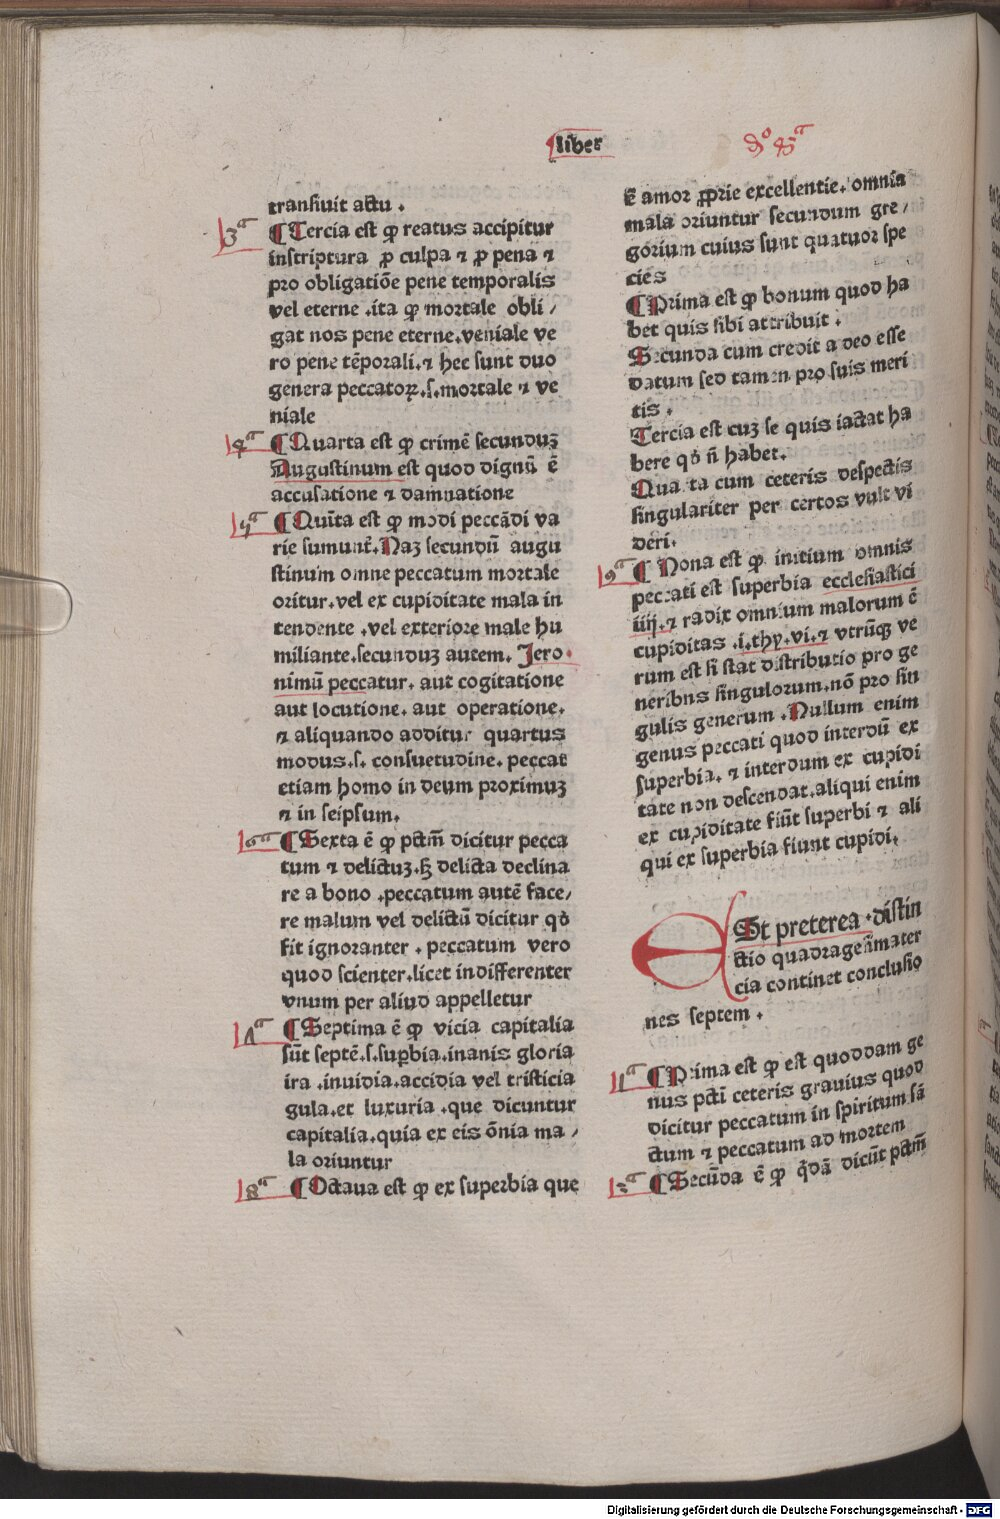 liber
dº 43ᵃ
transiuit actu .
3ᵃ ¶ Tercia est ꝙ reatus accipitur
in scriptura ꝓ culpa ⁊ ꝓ pena ⁊
pro obligatiõe pene temporalis
vel eterne .ita ꝙ mortale obli /
gat nos pene eterne.veniale ve
ro pene tẽporali.⁊ hec sunt duo
genera peccatoꝝ.s.mortale ⁊ ve
niale
4ᵃ ¶ Quarta est ꝙ crimẽ secunduꝫ
Augustinum est quod dignũ ẽ
accusatione ⁊ damnatione
5ᵃ ¶ Quĩta est ꝙ modi peccãdi va
rie sumunt̃. Naꝫ secundũ augu
stinum omne peccatum mortale
oritur.vel ex cupiditate mala in
tendente .vel exteriore male hu
miliante.secunduꝫ autem. Jero
nimũ peccatur. aut cogitatione
aut locutione. aut operatione.
⁊ aliquando additur quartus
modus.s. consuetudine. peccat
etiam homo in deum proximuꝫ
⁊ in seipsum.
6ᵃ ¶ Sexta ẽ ꝙ pctm̃ dicitur pecca
tum ⁊ delictuꝫ.sꝫ delicta declina
re a bono .peccatum autẽ face/
re malum vel delictũ dicitur qđ
fit ignoranter . peccatum vero
quod scienter.licet indifferenter
vnum per aliud appelletur
7ᵃ ¶ Septima ẽ ꝙ vicia capitalia
sũt septẽ.s.suꝑbia.inanis gloria
ira .inuidia.accidia vel tristicia
gula.et luxuria .que dicuntur
capitalia.quia ex eis õnia ma /
la oriuntur
8ᵃ ¶ Octaua est ꝙ ex superbia que
ẽ amor ꝓprie excellentie. omnia
mala oriuntur secundum gre /
gorium cuius sunt quatuor spe
cies
¶ Prima est ꝙ bonum quod ha
bet quis sibi attribuit .
Secunda cum credit a deo esse
datum sed tamen pro suis meri
tis .
Tercia est cuꝫ se quis iactat ha
bere qđ ñ habet.
Quarta cum ceteris despectis
singulariter per certos vult vi
deri.
9ᵃ ¶ Nona est ꝙ initium omnis
peccati est superbia ecclesiastici
iiij.⁊ radix omnium malorum ẽ
cupiditas .i.thy.vi.⁊ vtrũqꝫ ve
rum est si stat distributio pro ge
neribus singulorum.nõ pro sin
gulis generum .Nullum enim
genus peccati quod interdũ ex
superbia. ⁊ interdum ex cupidi
tate non descendat.aliqui enim
ex cupiditate fiũt superbi ⁊ ali
qui ex superbia fiunt cupidi.
ESt preterea .distin
ctio quadragesimater
cia continet conclusio
nes septem .
1ᵃ ¶ Prima est ꝙ est quoddam ge
nus pcti ceteris grauius quod
dicitur peccatum in spiritum sã
ctum ⁊ peccatum ad mortem
2ᵃ ¶ Secũda ẽ ꝙ q̃dã dicũt pctm̃
Digitalisierung gefördert durch die Deutsche Forschungsgemeinschaft - DFG